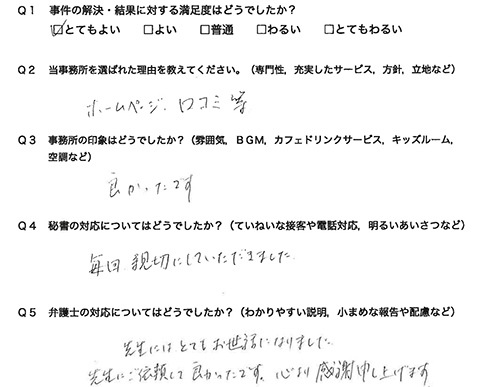 Q1 事件の解決・結果に対する満足度はどうでしたか？
☑とてもよい □よい □普通 □わるい □とてもわるい
Q2 当事務所を選ばれた理由を教えてください。（専門性，充実したサービス，方針，立地など）
ホームページ、口コミ等
Q3 事務所の印象はどうでしたか？（雰囲気，ＢＧＭ，カフェドリンクサービス，キッズルーム，
空調など）
良かったです
Q4 秘書の対応についてはどうでしたか？（ていねいな接客や電話対応，明るいあいさつなど）
毎回 親切にしていただきました
Q5 弁護士の対応についてはどうでしたか？（わかりやすい説明，小まめな報告や配慮など）
先生にはとてもお世話になりました
先生にご依頼して良かったです。心より感謝申し上げます